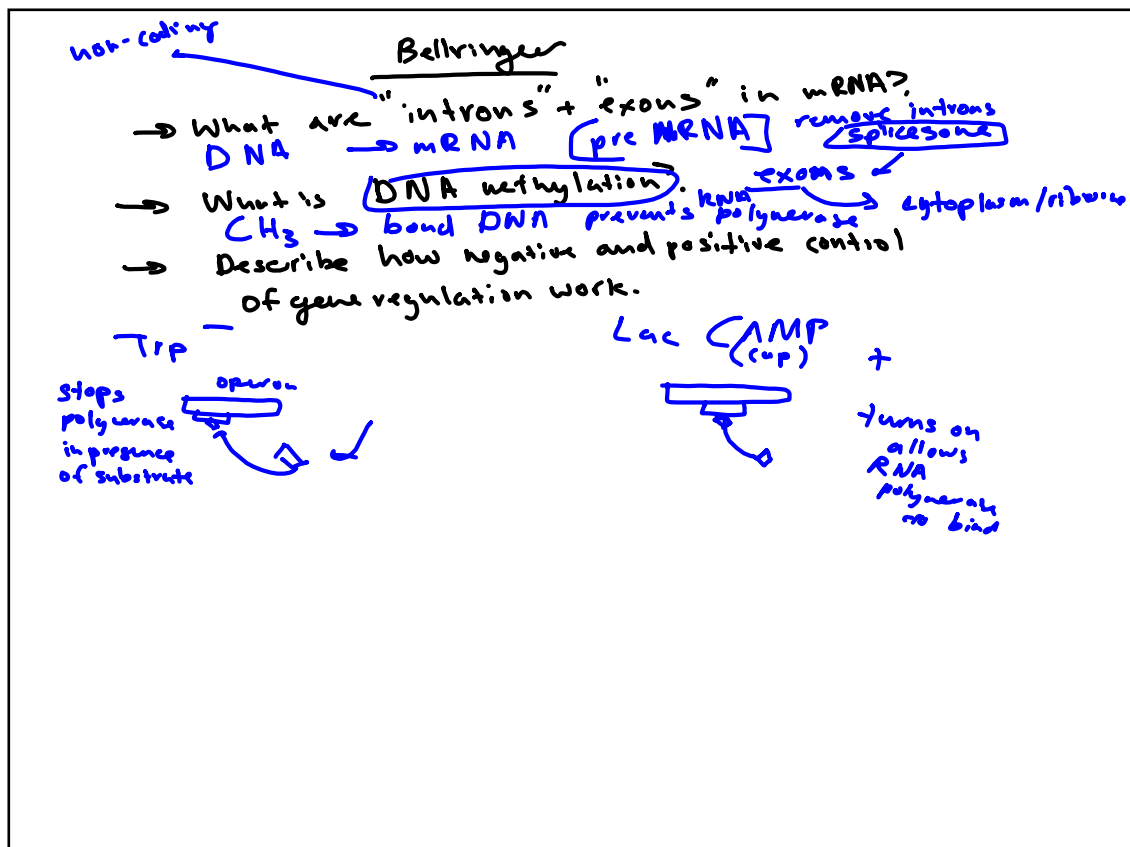 non-coding
Bellringer
→ What are "introns" + "exons" in mRNA?
DNA → mRNA [pre mRNA] remove introns
splicesome
exons
→ What is DNA methylation?
CH3 → bond DNA prevents RNA polymerase → cytoplasm/
→ Describe how negative and positive control
of gene regulation work.
Trp -
operon
stops
polymerase
in presence
of substrate
Lac CAMP
(cap)
+
turns on
allows
RNA
polymerase
to bind